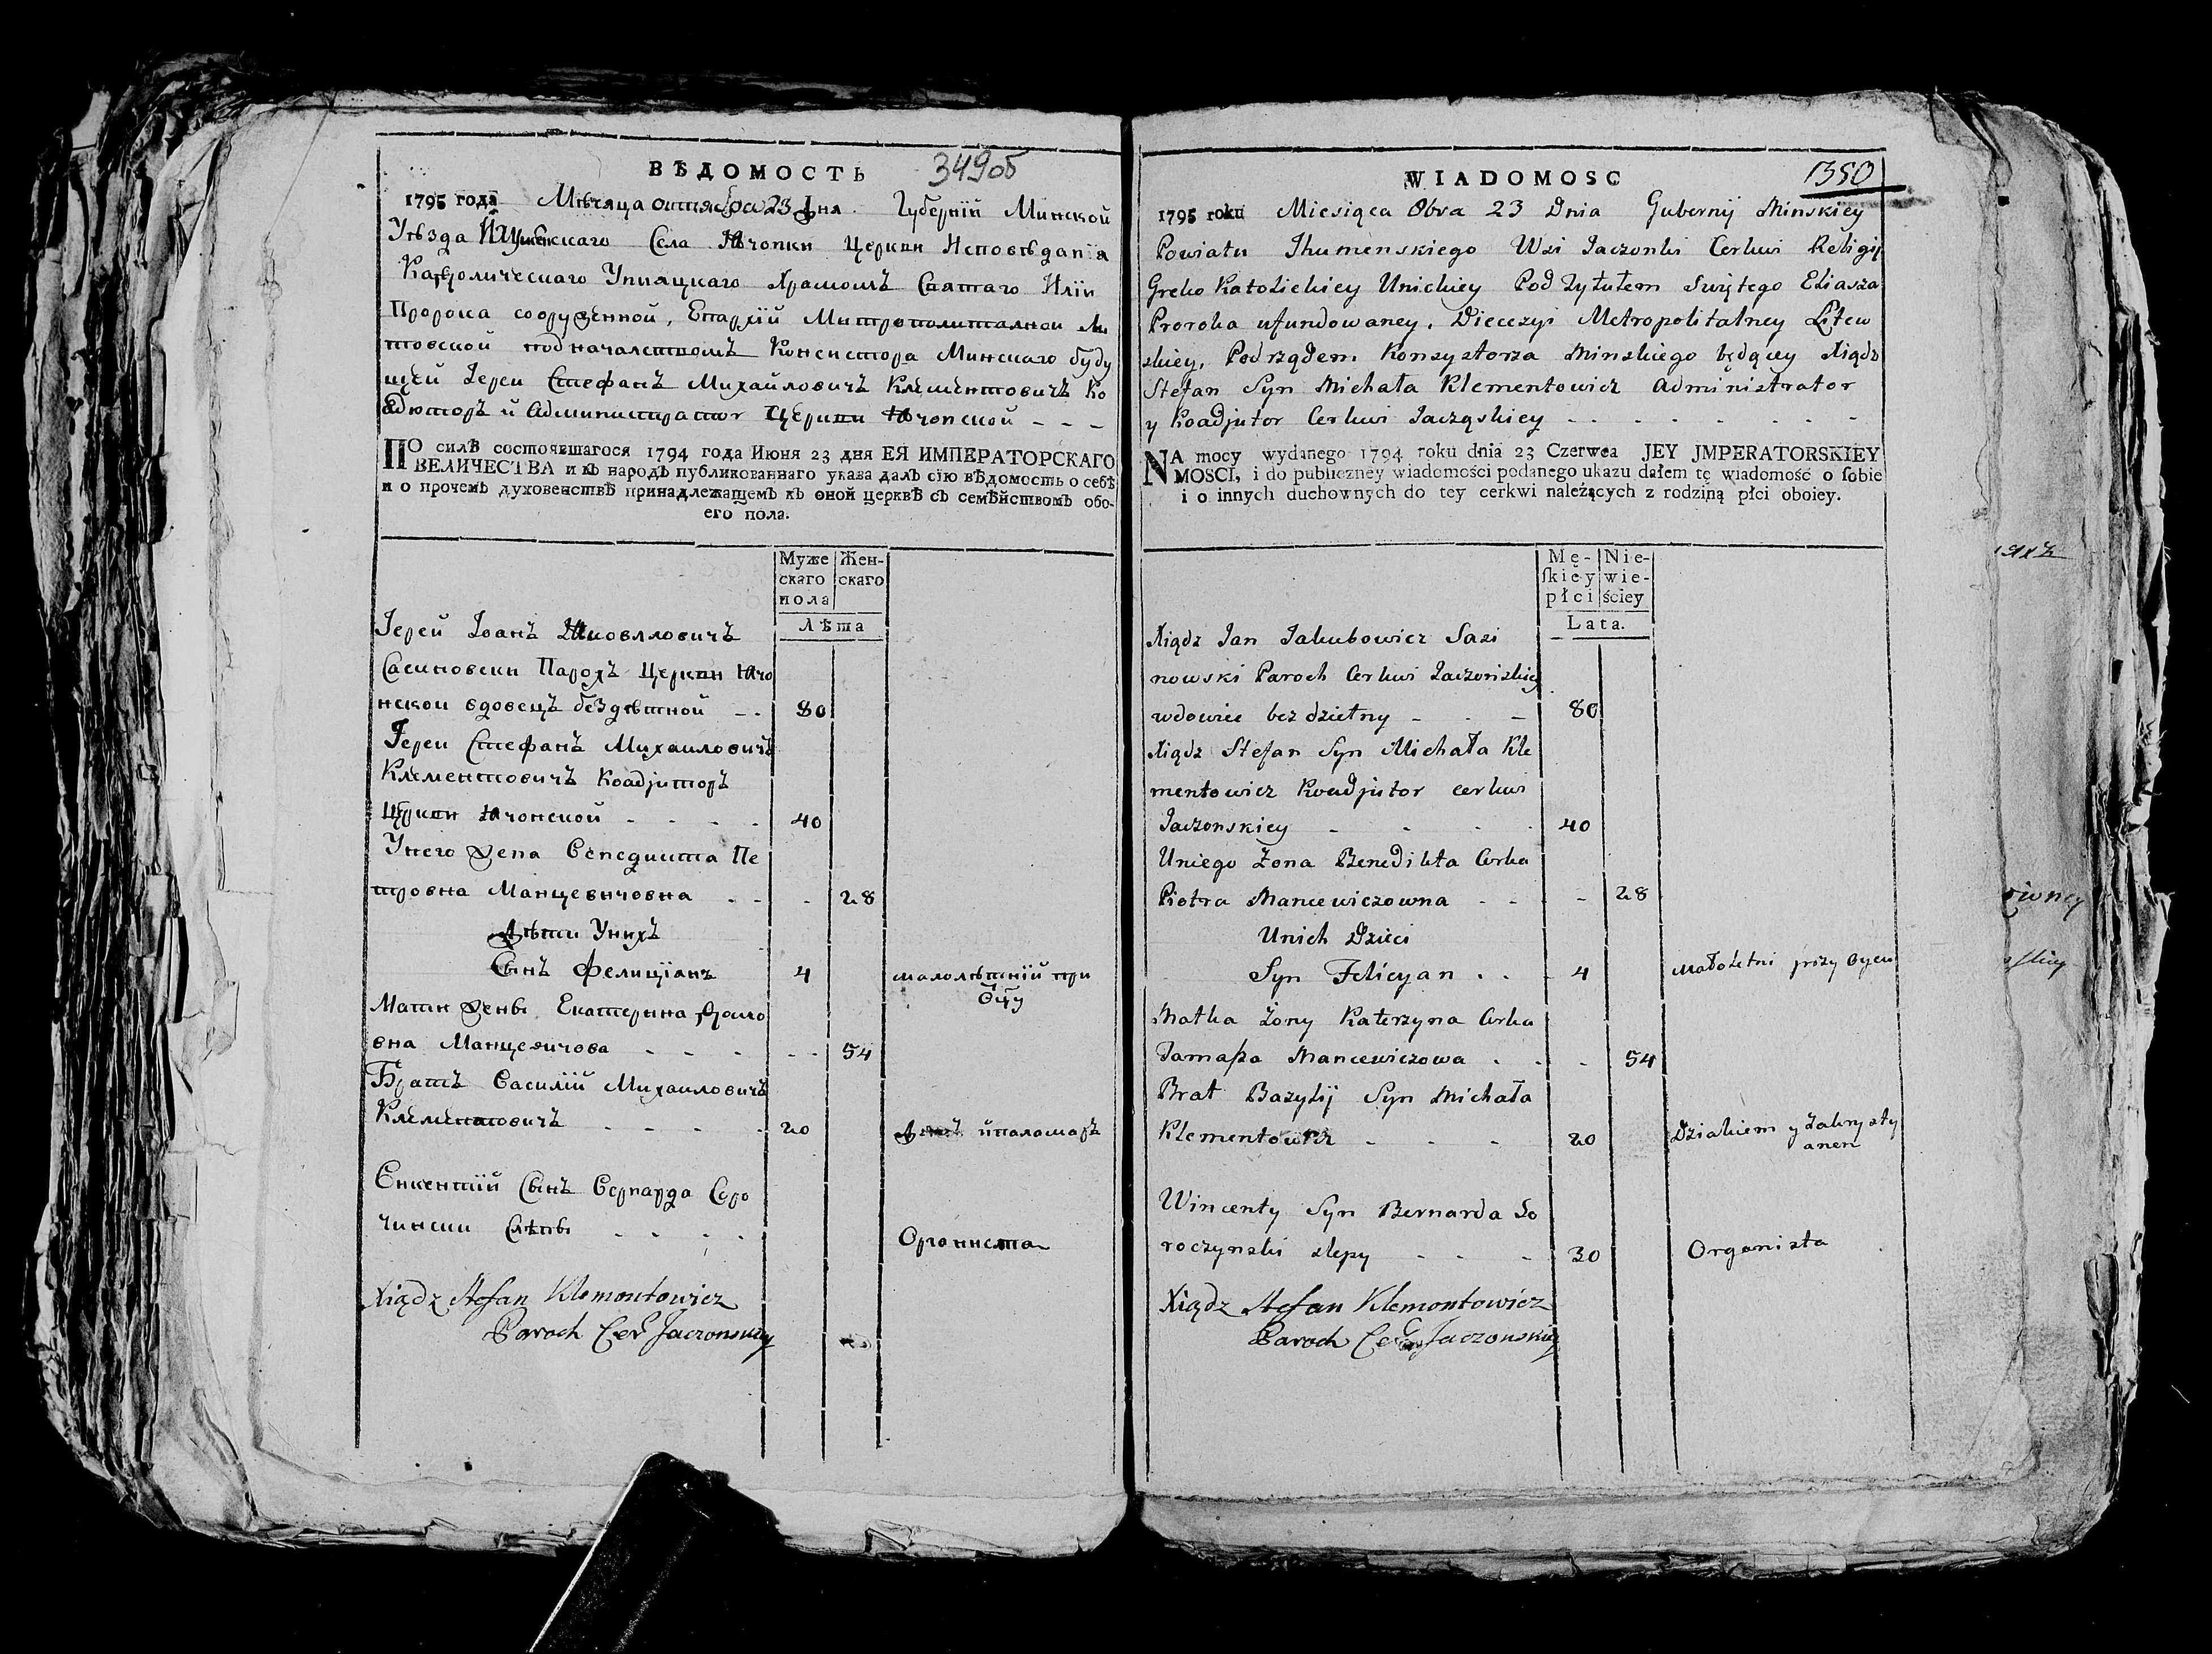 ВѢДОМОСТЬ 349об
1795 года Мѣсяца октября 23 Дня. Губерніи Минской
Уѣзда Игуменскаго Села Ячонки Церкви Исповѣданїя
Католическаго Унияцкаго Храмомъ Святаго Илїи
Пророка сооруженной, Епархїй Митрополиталной Ли
товской подначалством Консистора Минскаго буду
щей Іереи Стефанъ Михайловичъ Клементовичъ Ко
адюторъ и Администратор Церкви Ячонской - - -
ПО силѣ состоявшагося 1794 года Июня 23 дня ЕЯ ИМПЕРАТОРСКАГО
ВЕЛИЧЕСТВА и въ народъ публикованнаго указа далъ сїю вѣдомость о себѣ
и о прочемъ духовенствѣ принадлежащемъ къ оной церквѣ съ семѣйствомъ обо-
его пола.
Муже Жен-
скаго скаго
пола
Лѣта
Іерей Іоанъ Яковлловичъ
Сасиновски Парохъ Церкви Ячо
нской вдовецъ бездѣтной - - 80
Іереи Стефанъ Михаиловичъ
Клементовичъ Коадjиторъ
Церкви Ячонской - - - - 40
Унего Жена Венедикта Пе
тровна Манцевичовна - - - 28
Дѣти Унихъ
Сынъ Фелицїанъ 4 малолѣтнїй при Отцу
Мати Жены Екатерина
вна Манцевичова - - - - - 54
Братъ Василїй Михаиловичъ
Клементовичъ - - - - 20 и паламаръ
Викентїй Сынъ Бернарда Соро
чински Слѣпы - - - - Органиста
Xiądz Stefan Klemontowicz
Paroch Cer Jaczonskiy
WIADOMOSC 1350
1795 roku Miesiąca Obra 23 Dnia Gubernij Minskiey
Powiatu Jhumenskiego Wsi Jaczonki Cerkwi Religij
Greko Katolickiey Unickiey Pod Tytułem Swiętego Eliasza
Proroka ufundowaney, Diecezyi Metropolitalney Litew
skiey, Pod rządem Konsystorza Minskiego będącey Xiądz
Stefan Syn Michała Klementowicz Administrator
y Koadjutor Cerkwi Jacząskiey - - - - - - - -
NA mocy wydanego 1794 roku dnia 23 Czerwca JEY JMPERATORSKIEY
MOSCI, i do publiczney wiadomości podanego ukazu dałem tę wiadomość o sobie
i o innych duchownych do tey cerkwi należących z rodziną płci oboiey.
Mę- Nie-
skiey wie-
płci ściey
Lata.
Xiądz Jan Jakubowicz Sasi
nowski Paroch Cerkwi Jaczonskiey
wdowiec bez dzietny - - - 80
Xiądz Stefan Syn Michała Kle
mentowicz Koadjutor cerkwi
Jaczonskiey - - - - 40
Uniego Żona Benedikta Corka
Piotra Mancewiczowna - - - - 28
Unich Dzieci
Syn Felicyan . . - 4 Małoletni przy Oycu
Matka Żony Katerzyna Corka
Damasza Mancewiczowa . - - 54
Brat Bazylij Syn Michała
Klementowicz - - - 20 Dziakiem y Zakrysty
anem
Wincenty Syn Bernarda So
roczynski slepy - - - 30 Organista
Xiądz Stefan Klemontowicz
Paroch Jaczonskiey